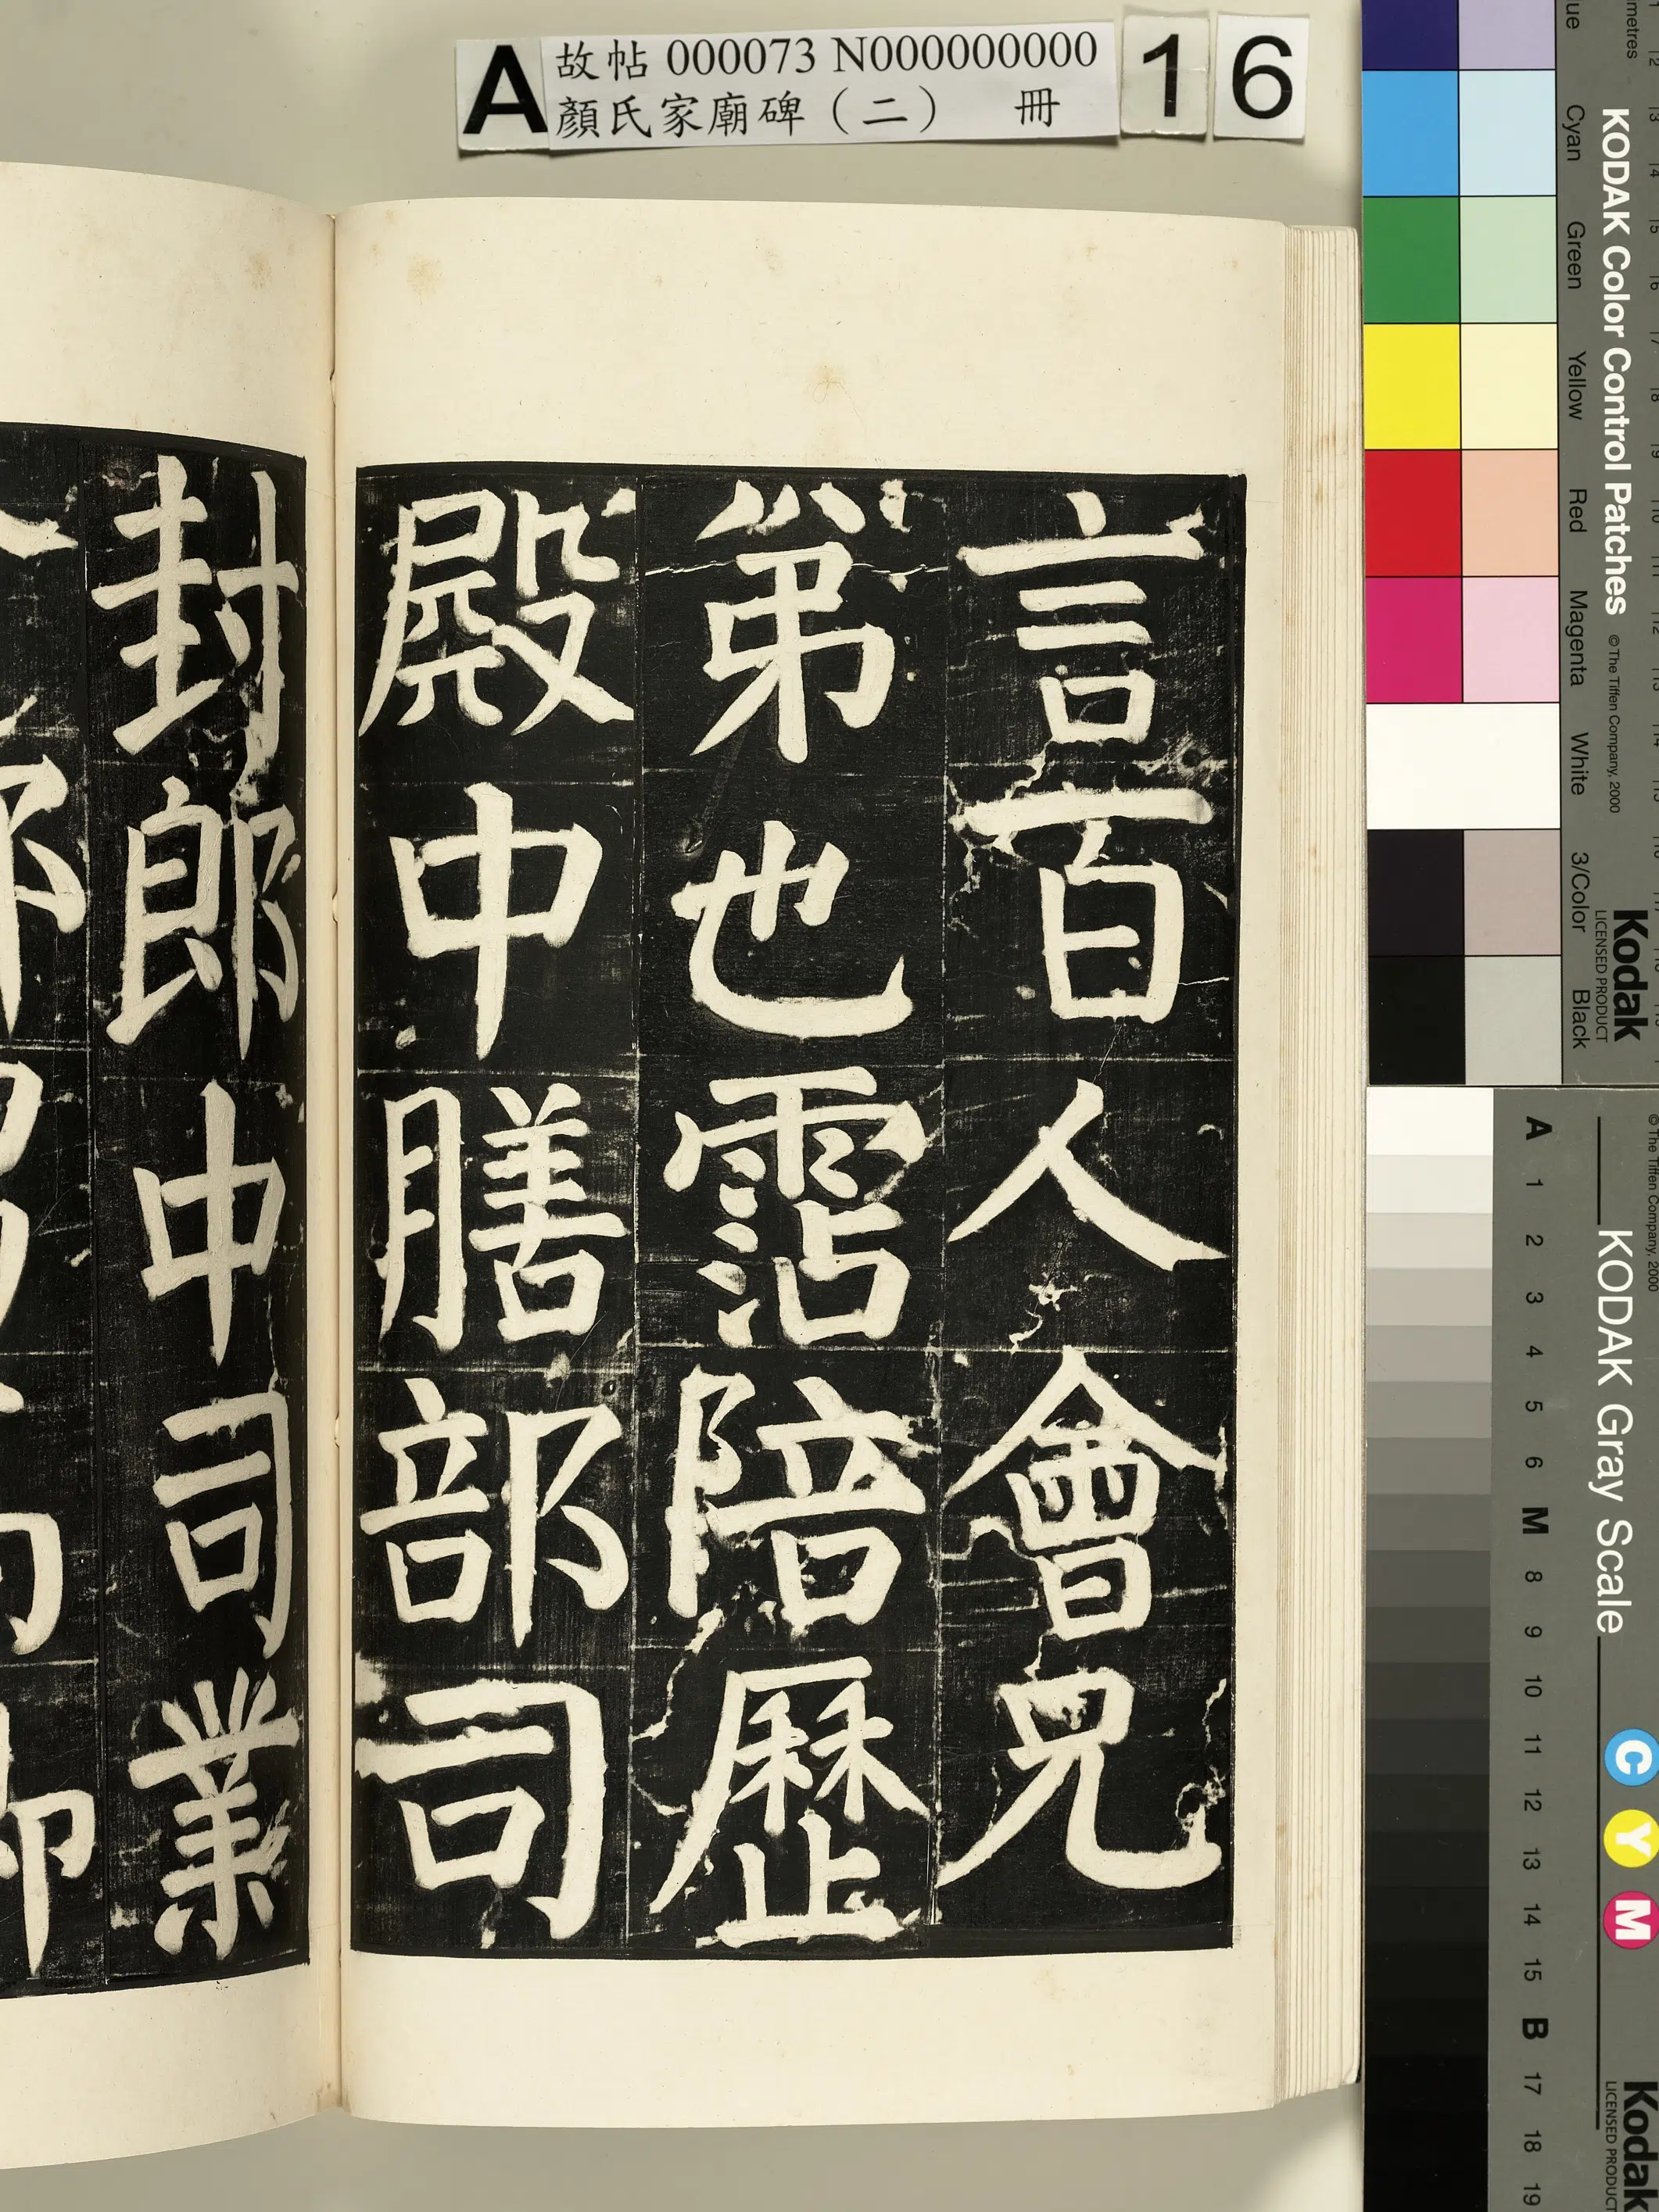 A 故帖 000073 N000000000 16
顏氏家廟碑（二） 冊
言百人會兄
弟也霑陪歷
殿中膳部司
封郎中司業
KODAK Color Control Patches
© The Tiffen Company, 2000
Kodak
LICENSED PRODUCT
Cyan Green Yellow Red Magenta White 3/Color Black
KODAK Gray Scale
© The Tiffen Company, 2000
A 1 2 3 4 5 6 M 8 9 10 11 12 13 14 15 B 17 18 19
C Y M
Kodak
LICENSED PRODUCT